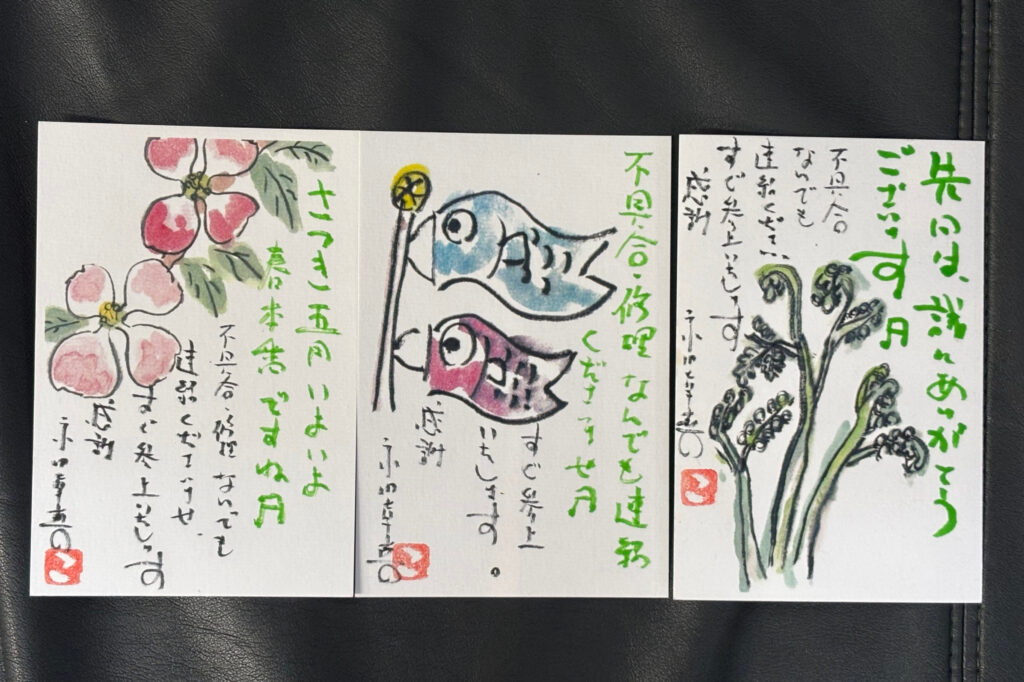 さつき五月いよいよ
春本番ですね
不具合・修理なんでも
連絡くださいませ
すぐ参上いたします
感謝
不具合・修理なんでも連絡
くださいませ
すぐ参上
いたします
感謝
先日は、誠にありがとう
ございます
不具合
なんでも
連絡ください
すぐ参上いたします
感謝